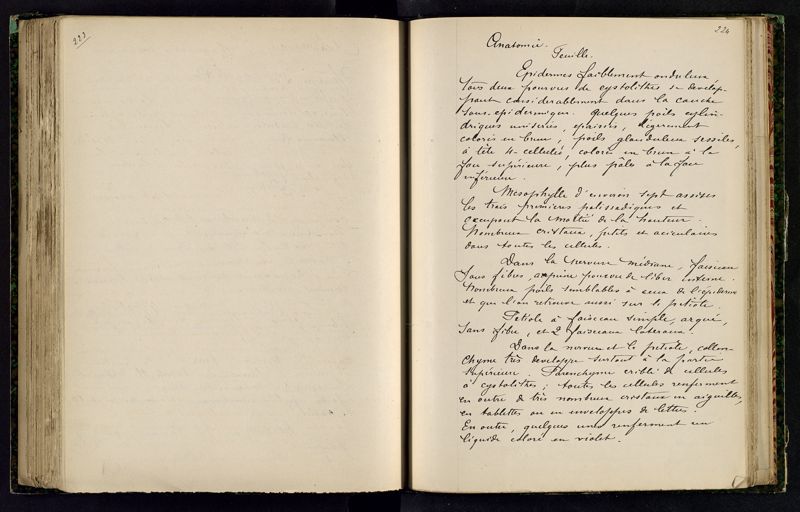 223
224
Anatomie.
Feuille.
Epidermes faiblement onduleux,
tous deux pourvus de cystolithes se develop-
pant considerablement dans la couche
sous-epidermique. Quelques poils cylin-
driques uniseries, epaissis, légerement
colorés en brun, poils glanduleux sessiles,
à tête 4-cellules, colorée en brun à la
face supérieure, plus pâles à la face
inférieure.
Mesophylle d'environ sept assises
les trois premières palissadiques et
occupant la moitié de la hauteur.
Nombreux cristaux, petits et aciculaires
dans toutes les cellules.
Dans la nervure médiane, faisceau
sans fibres, à peine pourvu de liber interne.
Nombreux poils semblables à ceux de l'épiderme
et que l'on retrouve aussi sur le petiole.
Petiole à faisceau simple, arqué,
sans fibre, et 2 faisceaux latéraux.
Dans la nervure et le petiole, collen-
chyme très developpé surtout à la partie
supérieure. Parenchyme criblé de cellules
à cystolithes; toutes les cellules renferment
en outre de très nombreux cristaux en aiguilles,
en tablettes ou en enveloppes de lettres.
En outre, quelques unes renferment un
liquide coloré en violet.